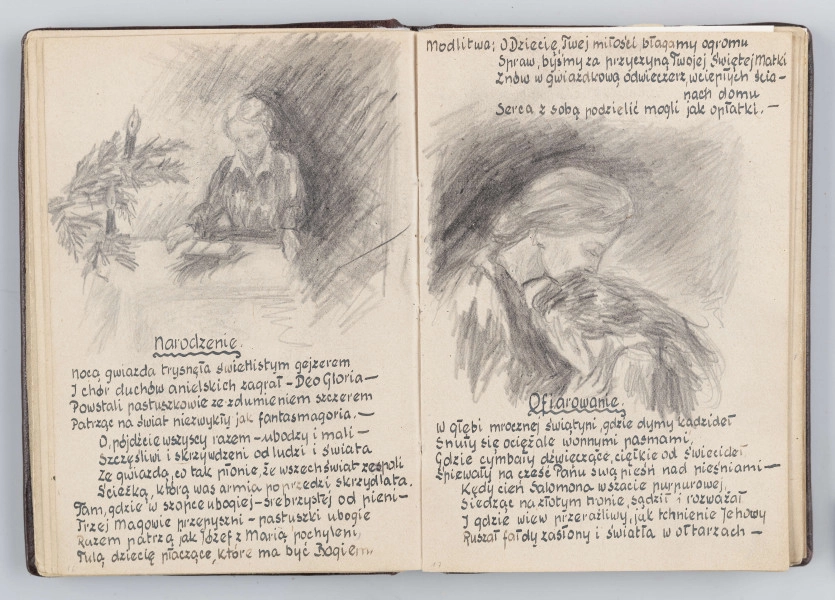 Narodzenie.
Nocą gwiazda trysnęła świetlistym gejzerem
I chór duchów anielskich zagrał – Deo Gloria –
Powstali pastuszkowie ze zdumieniem szczerem
Patrząc na świat niezwykły jak fantasmagoria. –
O, pójdźcie wszyscy razem – ubodzy i mali –
Szczęśliwi i skrzywdzeni od ludzi i świata
Ze gwiazdą, co tak płonie, że wszechświat zespoli
Ścieżką, którą was armia poprzedzi skrzydlata.
Tam, gdzie w szopce ubogiej – srebrzystej od pieni –
Trzej Magowie przepyszni – pastuszki ubogie
Razem patrzą jak Józef z Marią pochyleni,
Tulą dziecię płaczące, które ma być Bogiem
Modlitwa: O Dziecię, Twej miłości błagamy ogromu
Spraw, byśmy za przyczyną Twojej Świętej Matki
Znów w gwiazdkową odwieczerz, w ciepłych ścia-
nach domu
Serca z sobą podzielić mogli jak opłatki. –
Ofiarowanie.
W głębi mrocznej świątyni, gdzie dymy kadzideł
Snuły się ociężale wonnymi pasmami,
Gdzie cymbały dźwięczące, ciężkie od świecideł
Śpiewały na cześć Panu swą pieśń nad pieśniami –
Kędy cień Salomona w szacie purpurowej,
Siedząc na złotym tronie, sądził i rozważał
I gdzie wiew przeraźliwy, jak tchnienie Jehowy
Ruszał fałdy zasłony i światła w ołtarzach –